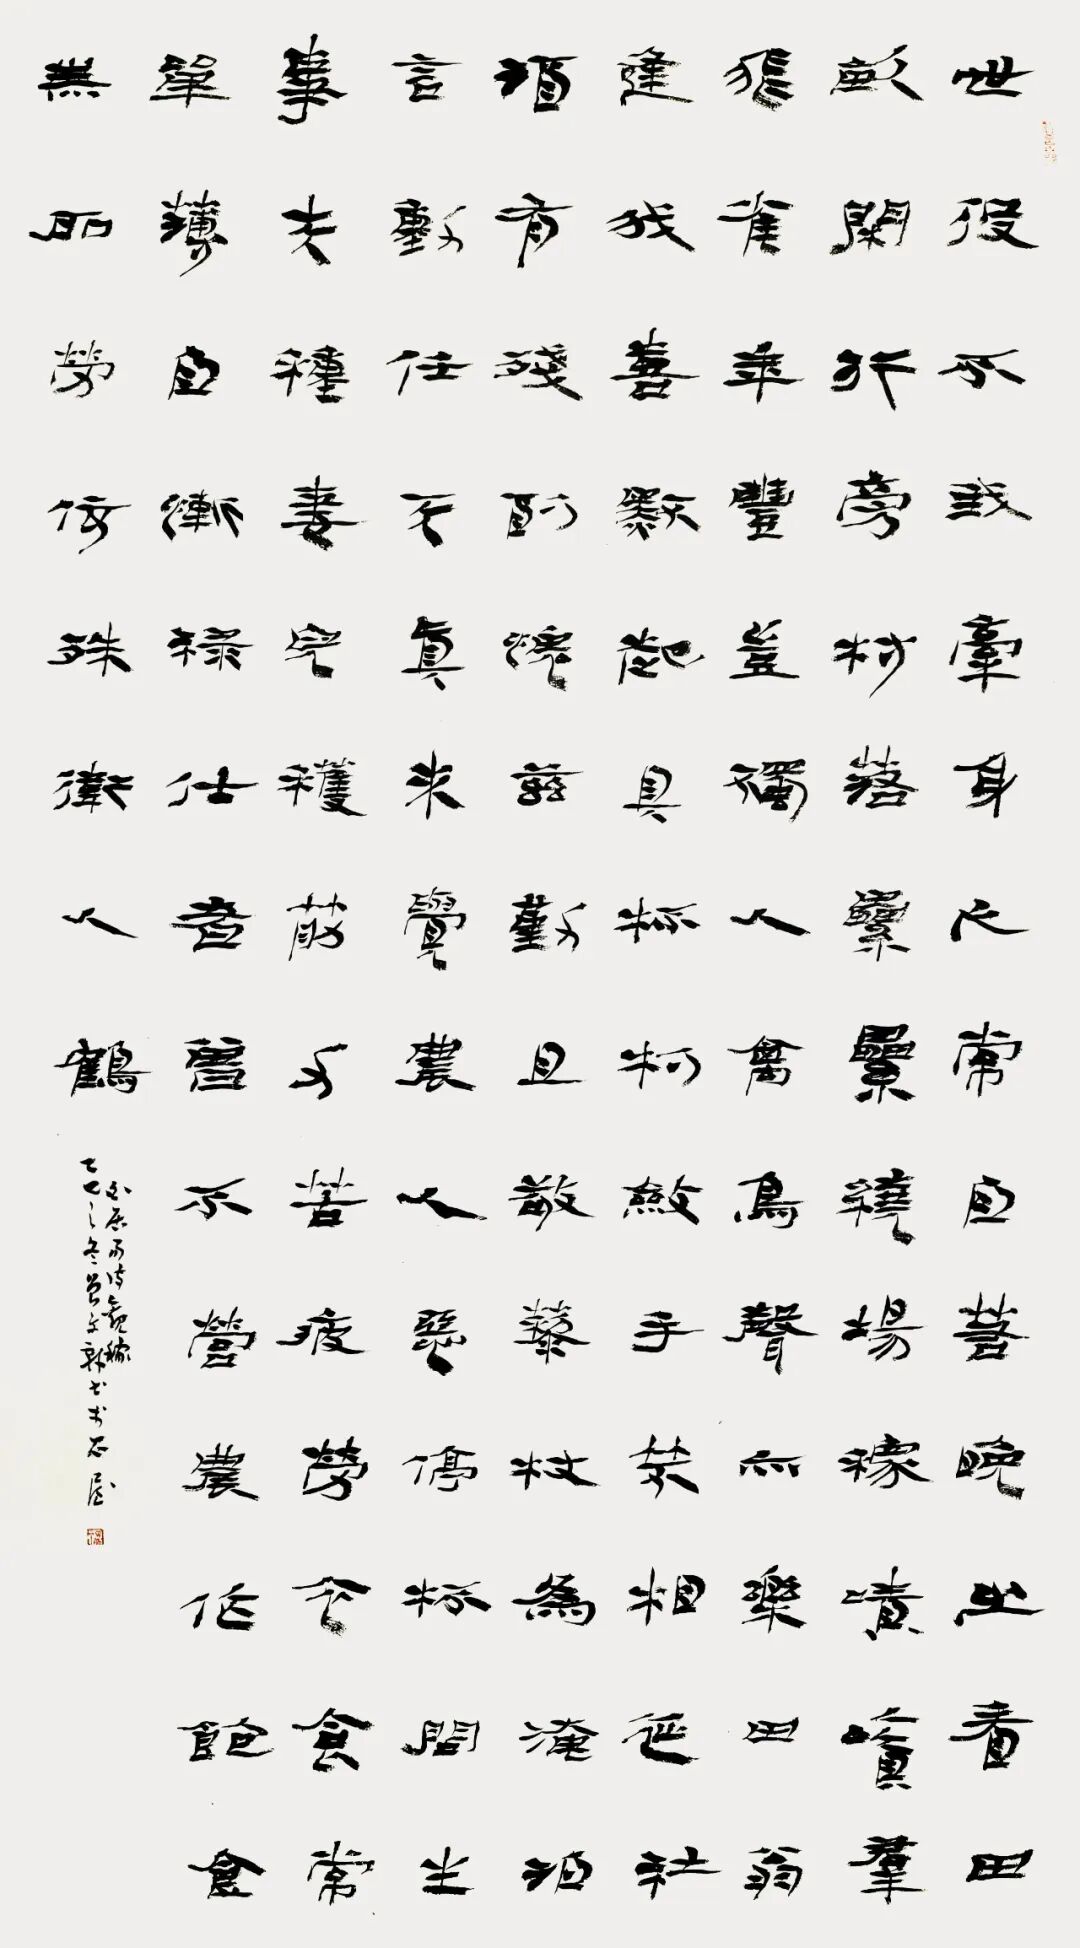 世役不我牽身心常自若晚出看田
畝閑行旁村落纍纍繞場稼嘖嘖羣
飛雀年豐豈獨人禽鳥聲亦樂田翁
逢我喜默起具杯杓斂手笑相延社
酒有殘酌愧茲勤且敬藜杖為淹泊
言動任天真未覺農人惡停杯問生
事夫種妻兒穫筋力苦疲勞衣食常
單薄自慚祿仕者曾不營農作飽食
無所勞何殊衛人鶴
白居易詩觀稼
乙巳之冬曾文新書於石屋